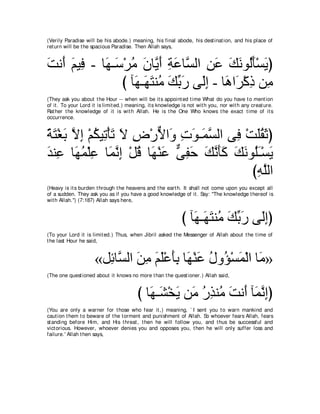 (Verily Paradise will be his abode.) meaning, his final abode, his destination, and his place of
return will be the spacious Paradise. Then Allah says,
﴿يَسْأَلُونَكَ عَنِ السَّاعَةِ أَيَّانَ مُرْسَـهَا - فِيمَ أَنتَ
مِن ذِكْرَاهَا - إِلَى رَبِّكَ مُنتَهَـهَآ ﴾
(They ask you about the Hour -- when will be its appointed time What do you have to mention
of it. To your Lord it is limited.) meaning, its knowledge is not with you, nor with any creature.
Rather the knowledge of it is with Allah. He is the One Who knows the exact time of its
occurrence.
﴿ثَقُلَتْ فِى السَّمَـوَتِ وَالاٌّرْضِ لاَ تَأْتِيكُمْ إِلاَّ بَغْتَةً
يَسْـَلُونَكَ كَأَنَّكَ حَفِىٌّ عَنْهَا قُلْ إِنَّمَا عِلْمُهَا عِندَ
اللَّهِ﴾
(Heavy is its burden through the heavens and the earth. It shall not come upon you except all
of a sudden. They ask you as if you have a good knowledge of it. Say: "The knowledge thereof is
with Allah.'') (7:187) Allah says here,
﴿إِلَى رَبِّكَ مُنتَهَـهَآ ﴾
(To your Lord it is limited.) Thus, when Jibril asked the Messenger of Allah about the time of
the last Hour he said,
«مَا الْمَسْؤُولُ عَنْهَا بِأَعْلَمَ مِنَ السَّائِل»
(The one questioned about it knows no more than the questioner.) Allah said,
﴿إِنَّمَآ أَنتَ مُنذِرُ مَن يَخْشَـهَا ﴾
(You are only a warner for those who fear it,) meaning, `I sent you to warn mankind and
caution them to beware of the torment and punishment of Allah. So whoever fears Allah, fears
standing before Him, and His threat, then he will follow you, and thus be successful and
victorious. However, whoever denies you and opposes you, then he will only suffer loss and
failure.' Allah then says,